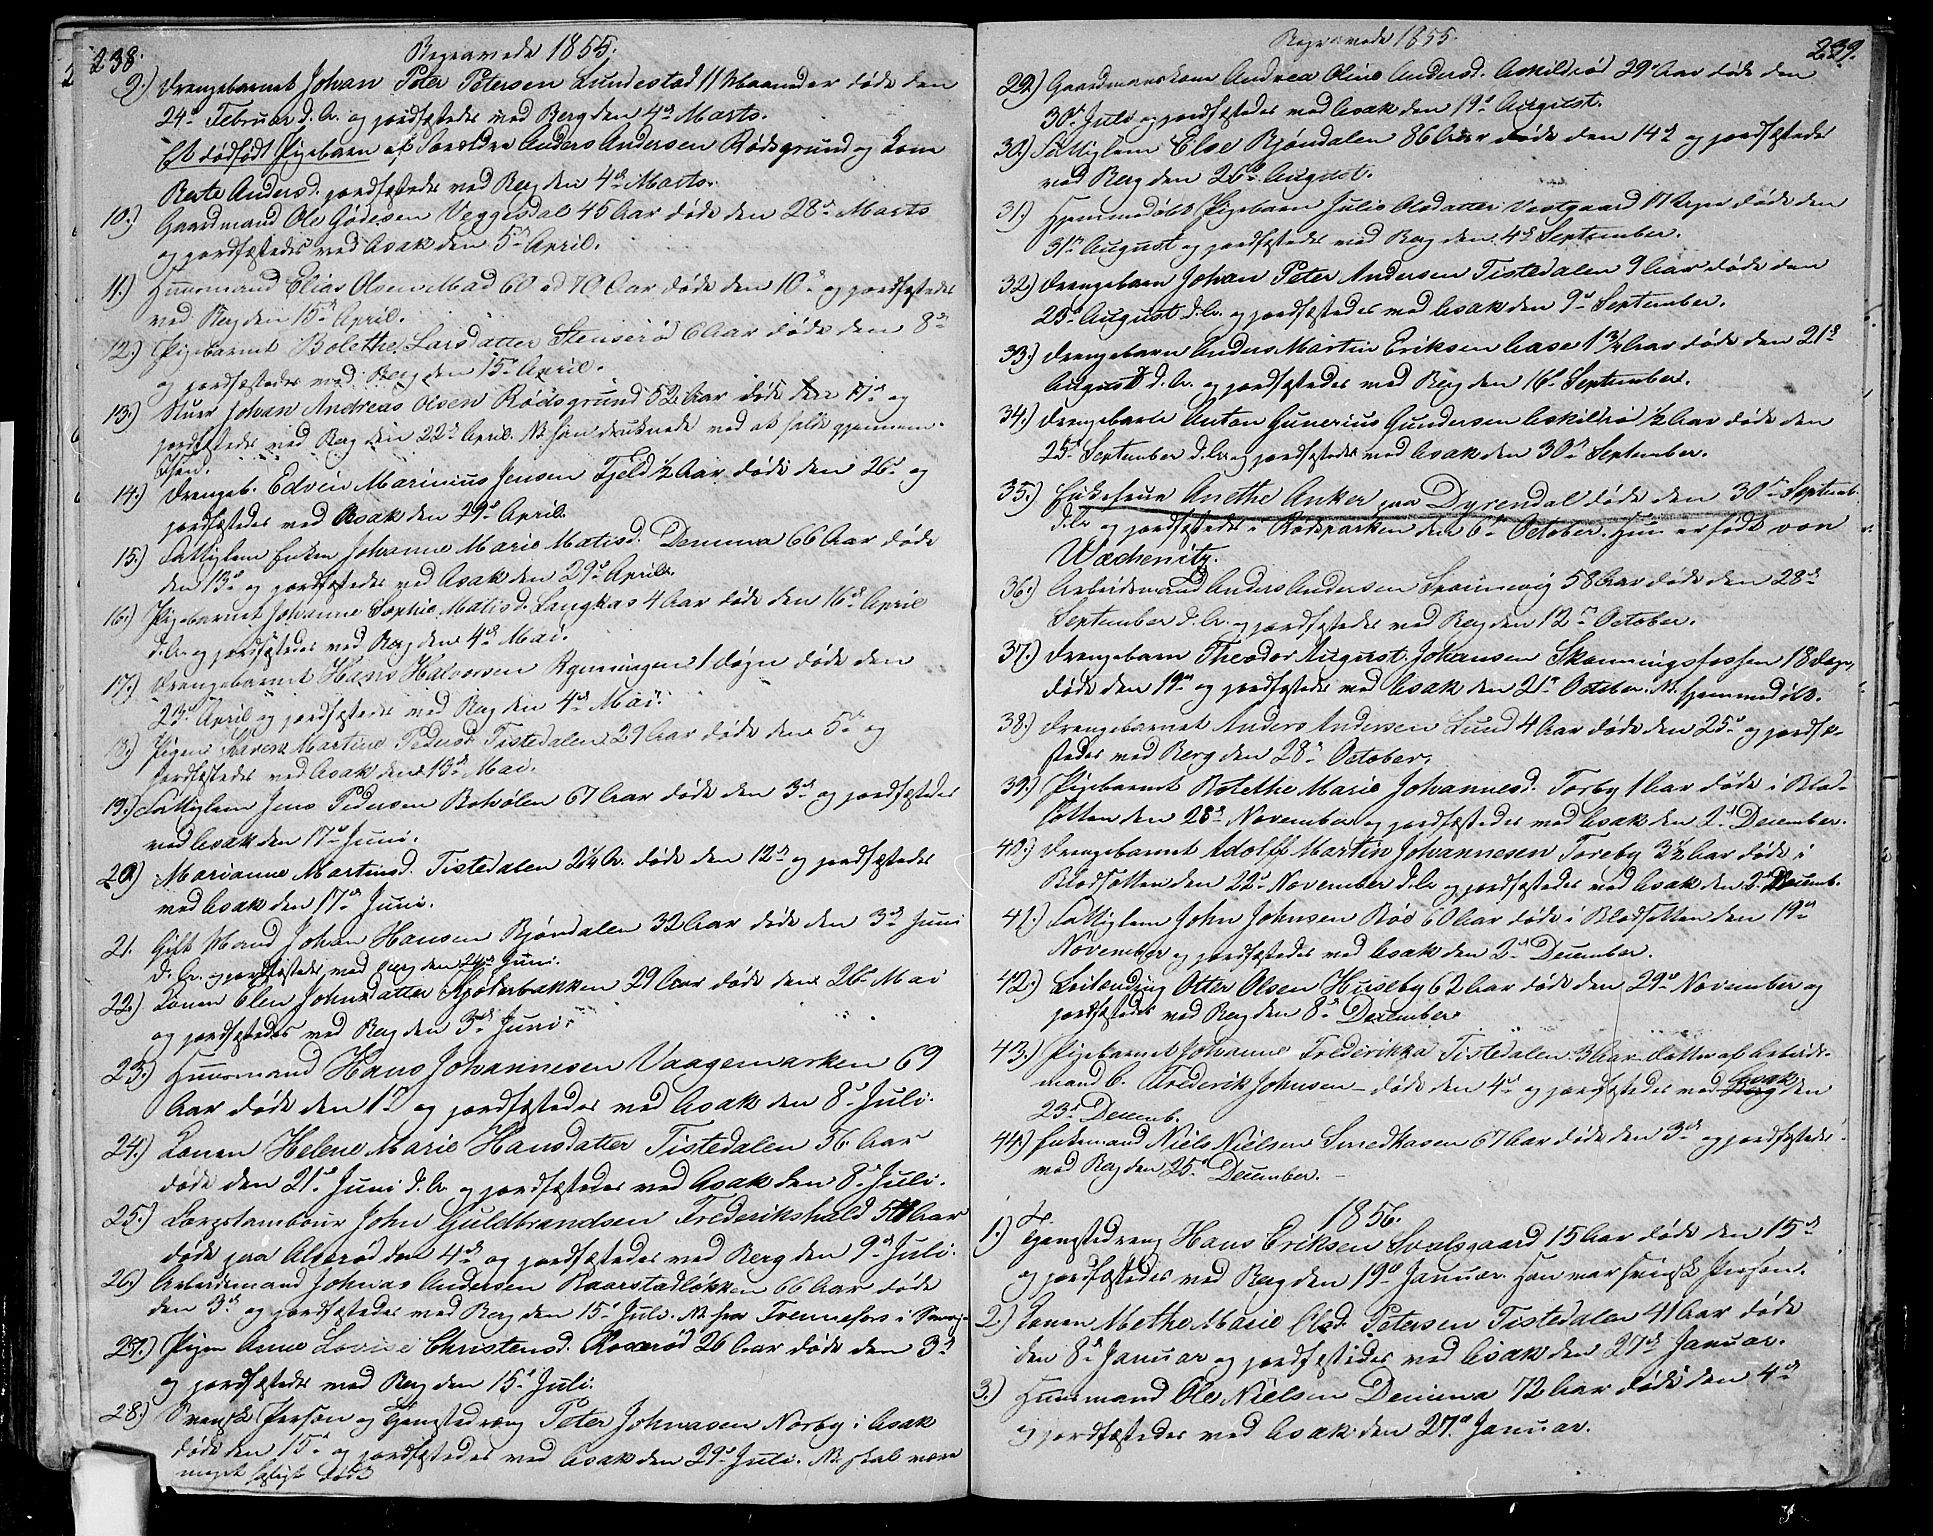 238.
Begravede 1855.
9.) Drengebarnet Johan Peter Petersen Lundestad 11 Maaneder døde den
24de Februar d. A. og jordfæstedes ved Berg den 4de Marts.
Et dødfødt Pigebarn af Forældre Anders Andersen Rødsgrund og Kone
Berte Andersd. jordfæstedes ved Berg den 4de Marts.
10.) Gaardmand Ole Gødesen Veggesdal 45 Aar døde den 28de Marts
og jordfæstedes ved Asak den 5te April.
11.) Huusmand Elias Olsen Mad 60 ad 70 Aar døde den 10de og jordfæstedes
ved Berg den 15de April.
12.) Pigebarnet Bolethe Larsdatter Stenserød 6 Aar døde den 8de
og jordfæstedes ved Berg den 15de April.
13.) Stuer Johan Andreas Olsen Rødsgrund 52 Aar døde den 11te og
jordfæstedes ved Berg den 22de April. NB han druknede ved at falde gjennem
Isen.
14.) Drengeb. Edvin Marinius Jensen Fjeld ½ Aar døde den 26de og
jordfæstedes ved Asak den 29de April.
15.) Fattiglem Enken Johanne Marie Matisd. Demma 66 Aar døde
den 13de og jordfæstedes ved Asak den 29de April.
16.) Pigebarnet Johanne Sophie Matisd. Langkas 4 Aar døde den 16de April
d. A. og jordfæstedes ved Berg den 4de Mai.
17.) Drengebarnet Hans Halvorsen Rønningen 1 døgn døde den
23de April og jordfæstedes ved Berg den 4de Mai.
18.) Pigen Maren Martine Pedersd. Tistedalen 29 Aar døde den 5te og
jordfæstedes ved Asak den 13de Mai.
19.) Fattiglem Jens Pedersen Bohølen 67 Aar døde den 3de og jordfæstedes
ved Asak den 17de Juni.
20.) Marianne Martinsd. Tistedalen 2½ A. døde den 12te og jordfæstedes
ved Asak den 17de Juni.
21. Gift Mand Johan Hansen Bjøndalen 32 Aar døde den 3de Juni
d. A. og jordfæstedes ved Berg den 24de Juni.
22.) Konen Elen Johnsdatter Spøterbakken 29 Aar døde den 26de Mai
og jordfæstedes ved Berg den 3de Juni.
23.) Huusmand Hans Johannesen Vaagemarken 69
Aar døde den 1te og jordfæstedes ved Asak den 8de Juli.
24.) Konen Helene Marie Hansdatter Tistedalen 56 Aar
døde den 21de Juni d. A. og jordfæstedes ved Asak den 8de Juli.
25.) Corpstambour John Guldbrandsen Frederikshald 54 Aar
døde paa Alserød den 4de og jordfæstedes ved Berg den 9de Juli.
26.) Arbeidsmand Johnas Andersen Kaarstadløkken 66 Aar døde
den 3de og jordfæstedes ved Berg den 15de Juli. NB fra Fremmefors i Sverig
27.) Pigen Anne Lovise Christensd. Roserød 26 Aar døde den 3de
og jordfæstedes ved Berg den 15de Juli.
28.) Svensk Person og Tjenestedreng Peter Johnasen Norby i Asak
døde den 15de og jordfæstedes ved Asak den 29de Juli. NB skal være
meget hastigt død
239.
Begravede 1855.
29.) Gaardmandskone Andrea Oline Andersd. Askildrød 29 Aar døde den
30te Juli og jordfæstedes ved Asak den 19de August.
30.) Fattiglem Else Bjøndalen 86 Aar døde den 14de og jordfæstedes
ved Berg den 26de August.
31.) Hjemmedøbt Pigebarn Julie Olsdatter Vestgaard 17 Uger døde den
31te August og jordfæstedes ved Berg den 4de September.
32.) Drengebarn Johan Peter Andersen Tistedalen 9 Aar døde den
25de August d. A. og jordfæstedes ved Asak den 9de September.
33.) Drengebarn Anders Martin Eriksen Aase 1¾ Aar døde den 21de
August d. A. og jordfæstedes ved Berg den 16de September.
34.) Drengebarn Anton Gunerius Gundersen Askildrød ½ Aar døde den
25de September d. A. og jordfæstedes ved Asak den 30te September.
35.) Enkefrue Anethe Anker paa Dyrendal døde den 30te Septemb.
d. A. og jordfæstedes i Rødsparken den 6te October. Hun er født von
Wachenitz.
36.) Arbeidsmand Anders Andersen Sponvig 58 Aar døde den 28de
September d. A. og jordfæstedes ved Berg den 12te October.
37.) Drengebarn Theodor August Johansen Skonningsfossen 18 Dage,
døde den 19de og jordfæstedes ved Asak den 21de October. NB. hjemmedøbt.
38.) Drengebarnet Anders Andersen Lund 4 Aar døde den 25de og jordfæ-
stedes ved Berg den 28de October.
39.) Pigebarnet Bolethe Marie Johannesd. Torby 1 Aar døde i Blod-
sotten den 28de November og jordfæstedes ved Asak den 2den December.
40.) Drengebarnet Adolff Martin Johannesen Toreby 3½ Aar døde i
Blodsotten den 22de November d. A. og jordfæstedes ved Asak den 2den Decemb.
41.) Fattiglem John Johnsen Bøe 60 Aar døde i Blodsotten den 19de
November og jordfæstedes ved Asak den 2den December.
42.) Leilænding Otter Olsen Huseby 62 Aar døde den 29de November og
jordfæstedes ved Berg den 8de December
43.) Pigebarnet Johanne Frederikka Tistedalen 3 Aar datter af Arbeids-
mand C. Frederik Johnsen – døde den 4de og jordfæstedes ved Berg Asak den
23de Decemb.
44.) Enkemand Niels Nielsen Smedhasen 67 Aar døde den 3de og jordfæstedes
ved Berg den 25de December. –
1856.
1.) Tjenestedreng Hans Eriksen Svalsgaard 15 Aar døde den 15de
og jordfæstedes ved Berg den 19de Januar. Han var svensk Person.
2.) Konen Methe Marie Olsd. Petersen Tistedalen 41 Aar døde
den 8de Januar og jordfæstedes ved Asak den 27de Januar.
3.) Huusmand Ole Nielsen Demma 72 Aar døde den 4de
og jordfæstedes ved Asak den 27de Januar.